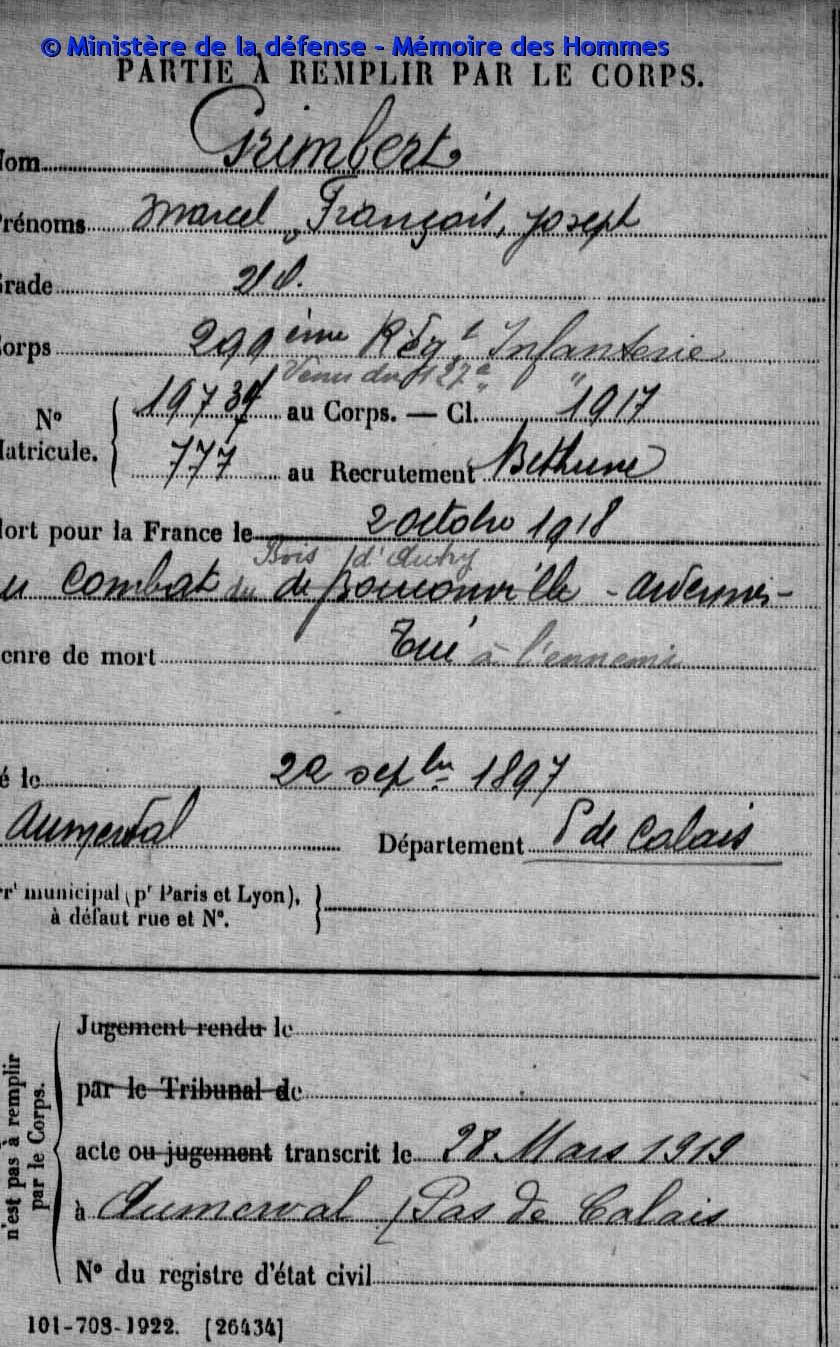 © Ministère de la défense - Mémoire des Hommes
PARTIE À REMPLIR PAR LE CORPS.
Nom Grimbert
Prénoms Marcel, François, Joseph
Grade 2/Cl.
Corps 299 ème Régt Infanterie
Venu du 127e "
Nº Matricule. 19734 au Corps. — Cl. 1917
777 au Recrutement Bethune
Mort pour la France le 2 octobre 1918
Bois d'Autry
au Combat du de Bouconville - Ardennes -
Genre de mort Tué à l'ennemi
Né le 22 septbre 1897
Aumerval Département P de Calais
Arrt municipal (pr Paris et Lyon),
à défaut rue et Nº.
Jugement rendu le
par le Tribunal de
acte ou jugement transcrit le 28 Mars 1919
à Aumerval (Pas de Calais
Nº du registre d'état civil
n'est pas à remplir
par le Corps.
101-708-1922. [26434]